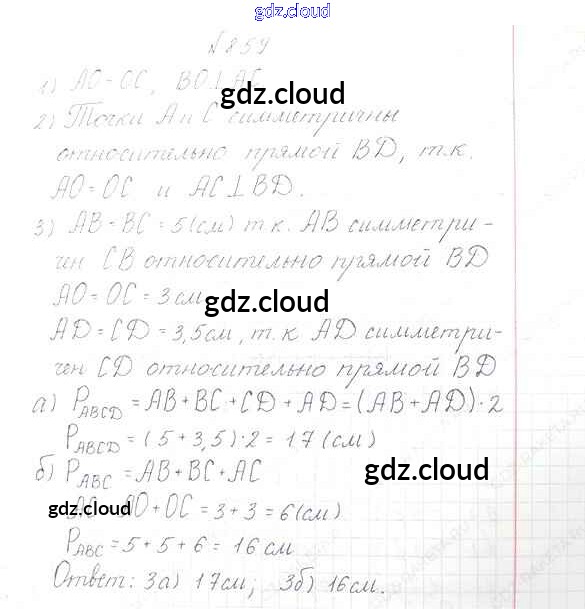 gdz.cloud
№ 859
1) АО = ОС, ВО⊥АС
gdz.cloud
2) Точки А и С симметричны
относительно прямой BD, т.к.
АО = ОС и АС⊥BD.
3) АВ = ВС = 5 (см) т.к. АВ симметри-
чен СВ относительно прямой BD
АО = ОС = 3 см
gdz.cloud
AD = CD = 3,5 см, т.к AD симметри-
чен CD относительно прямой BD
а) P_ABCD = AB + BC + CD + AD = (AB + AD) · 2
P_ABCD = (5 + 3,5) · 2 = 17 (см)
б) P_ABC = AB + BC + AC
gdz.cloud
gdz.cloud
АО + ОС = 3 + 3 = 6 (см)
P_ABC = 5 + 5 + 6 = 16 см
Ответ: 3а) 17 см; 3б) 16 см.